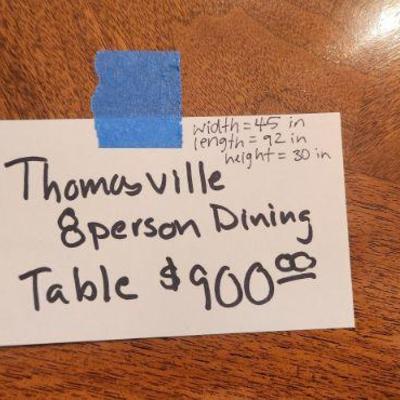 width = 45 in
length = 92 in
height = 30 in
Thomasville
8person Dining
Table $900.00